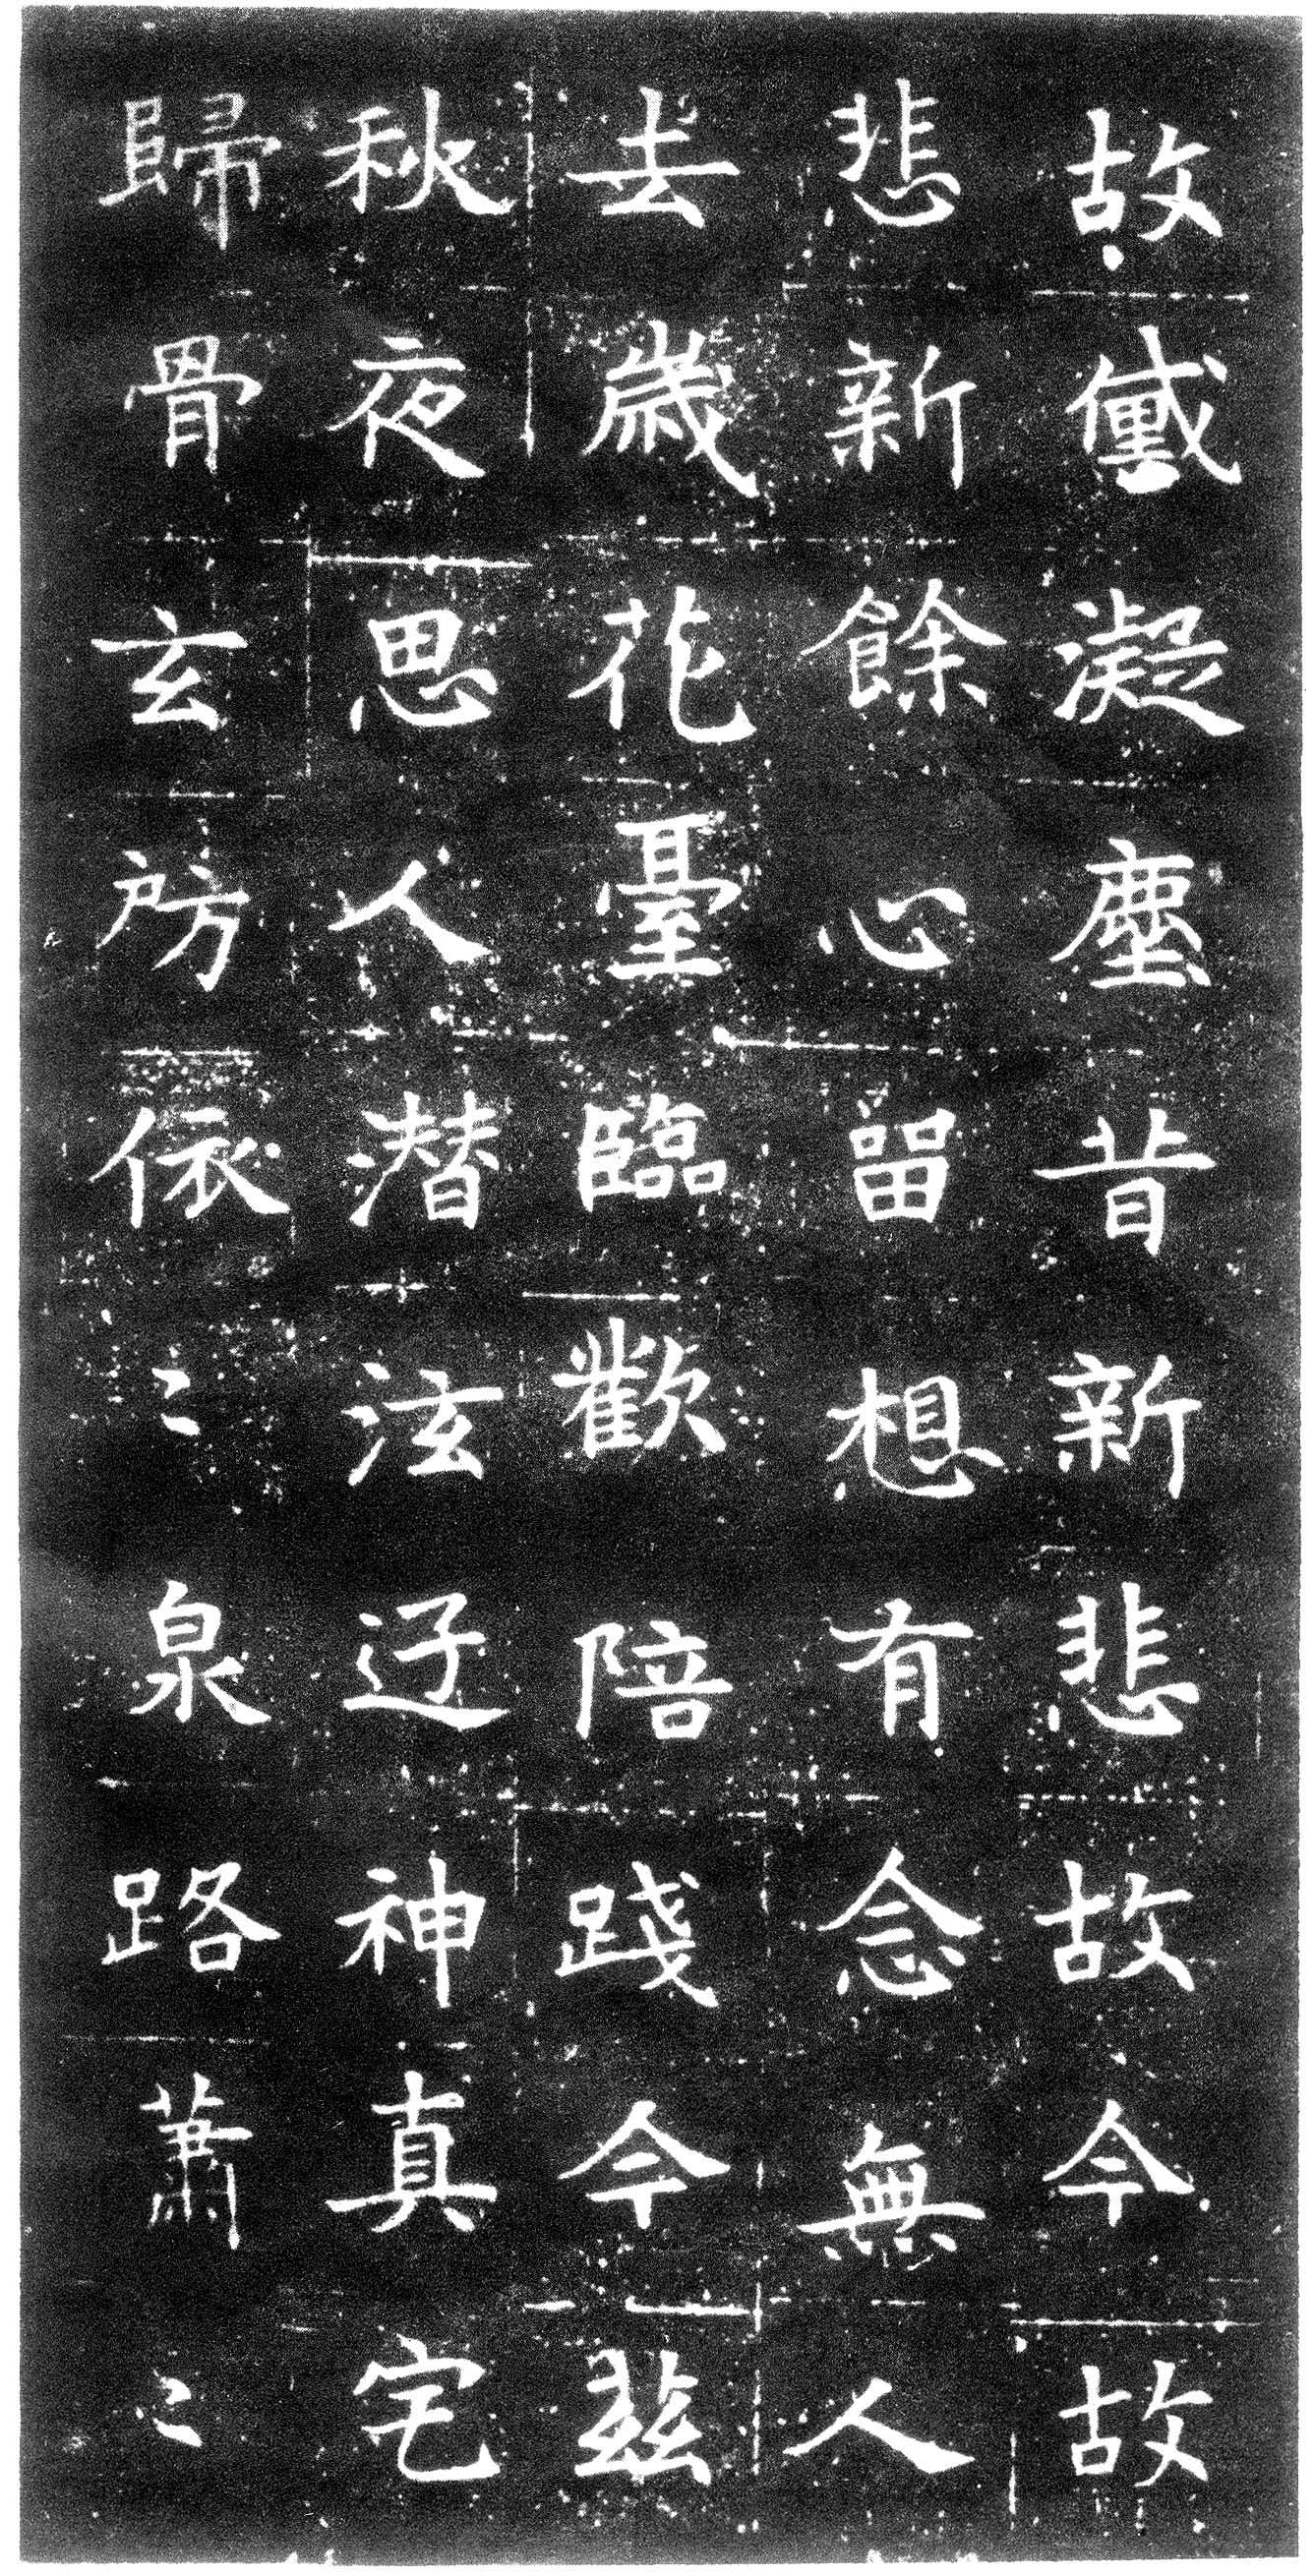 故黛凝塵昔新悲故今故
悲新餘心留想有念無人
去歲花臺臨歡陪踐今茲
秋夜思人潛泫迂神真宅
歸骨玄房依〻泉路蕭〻